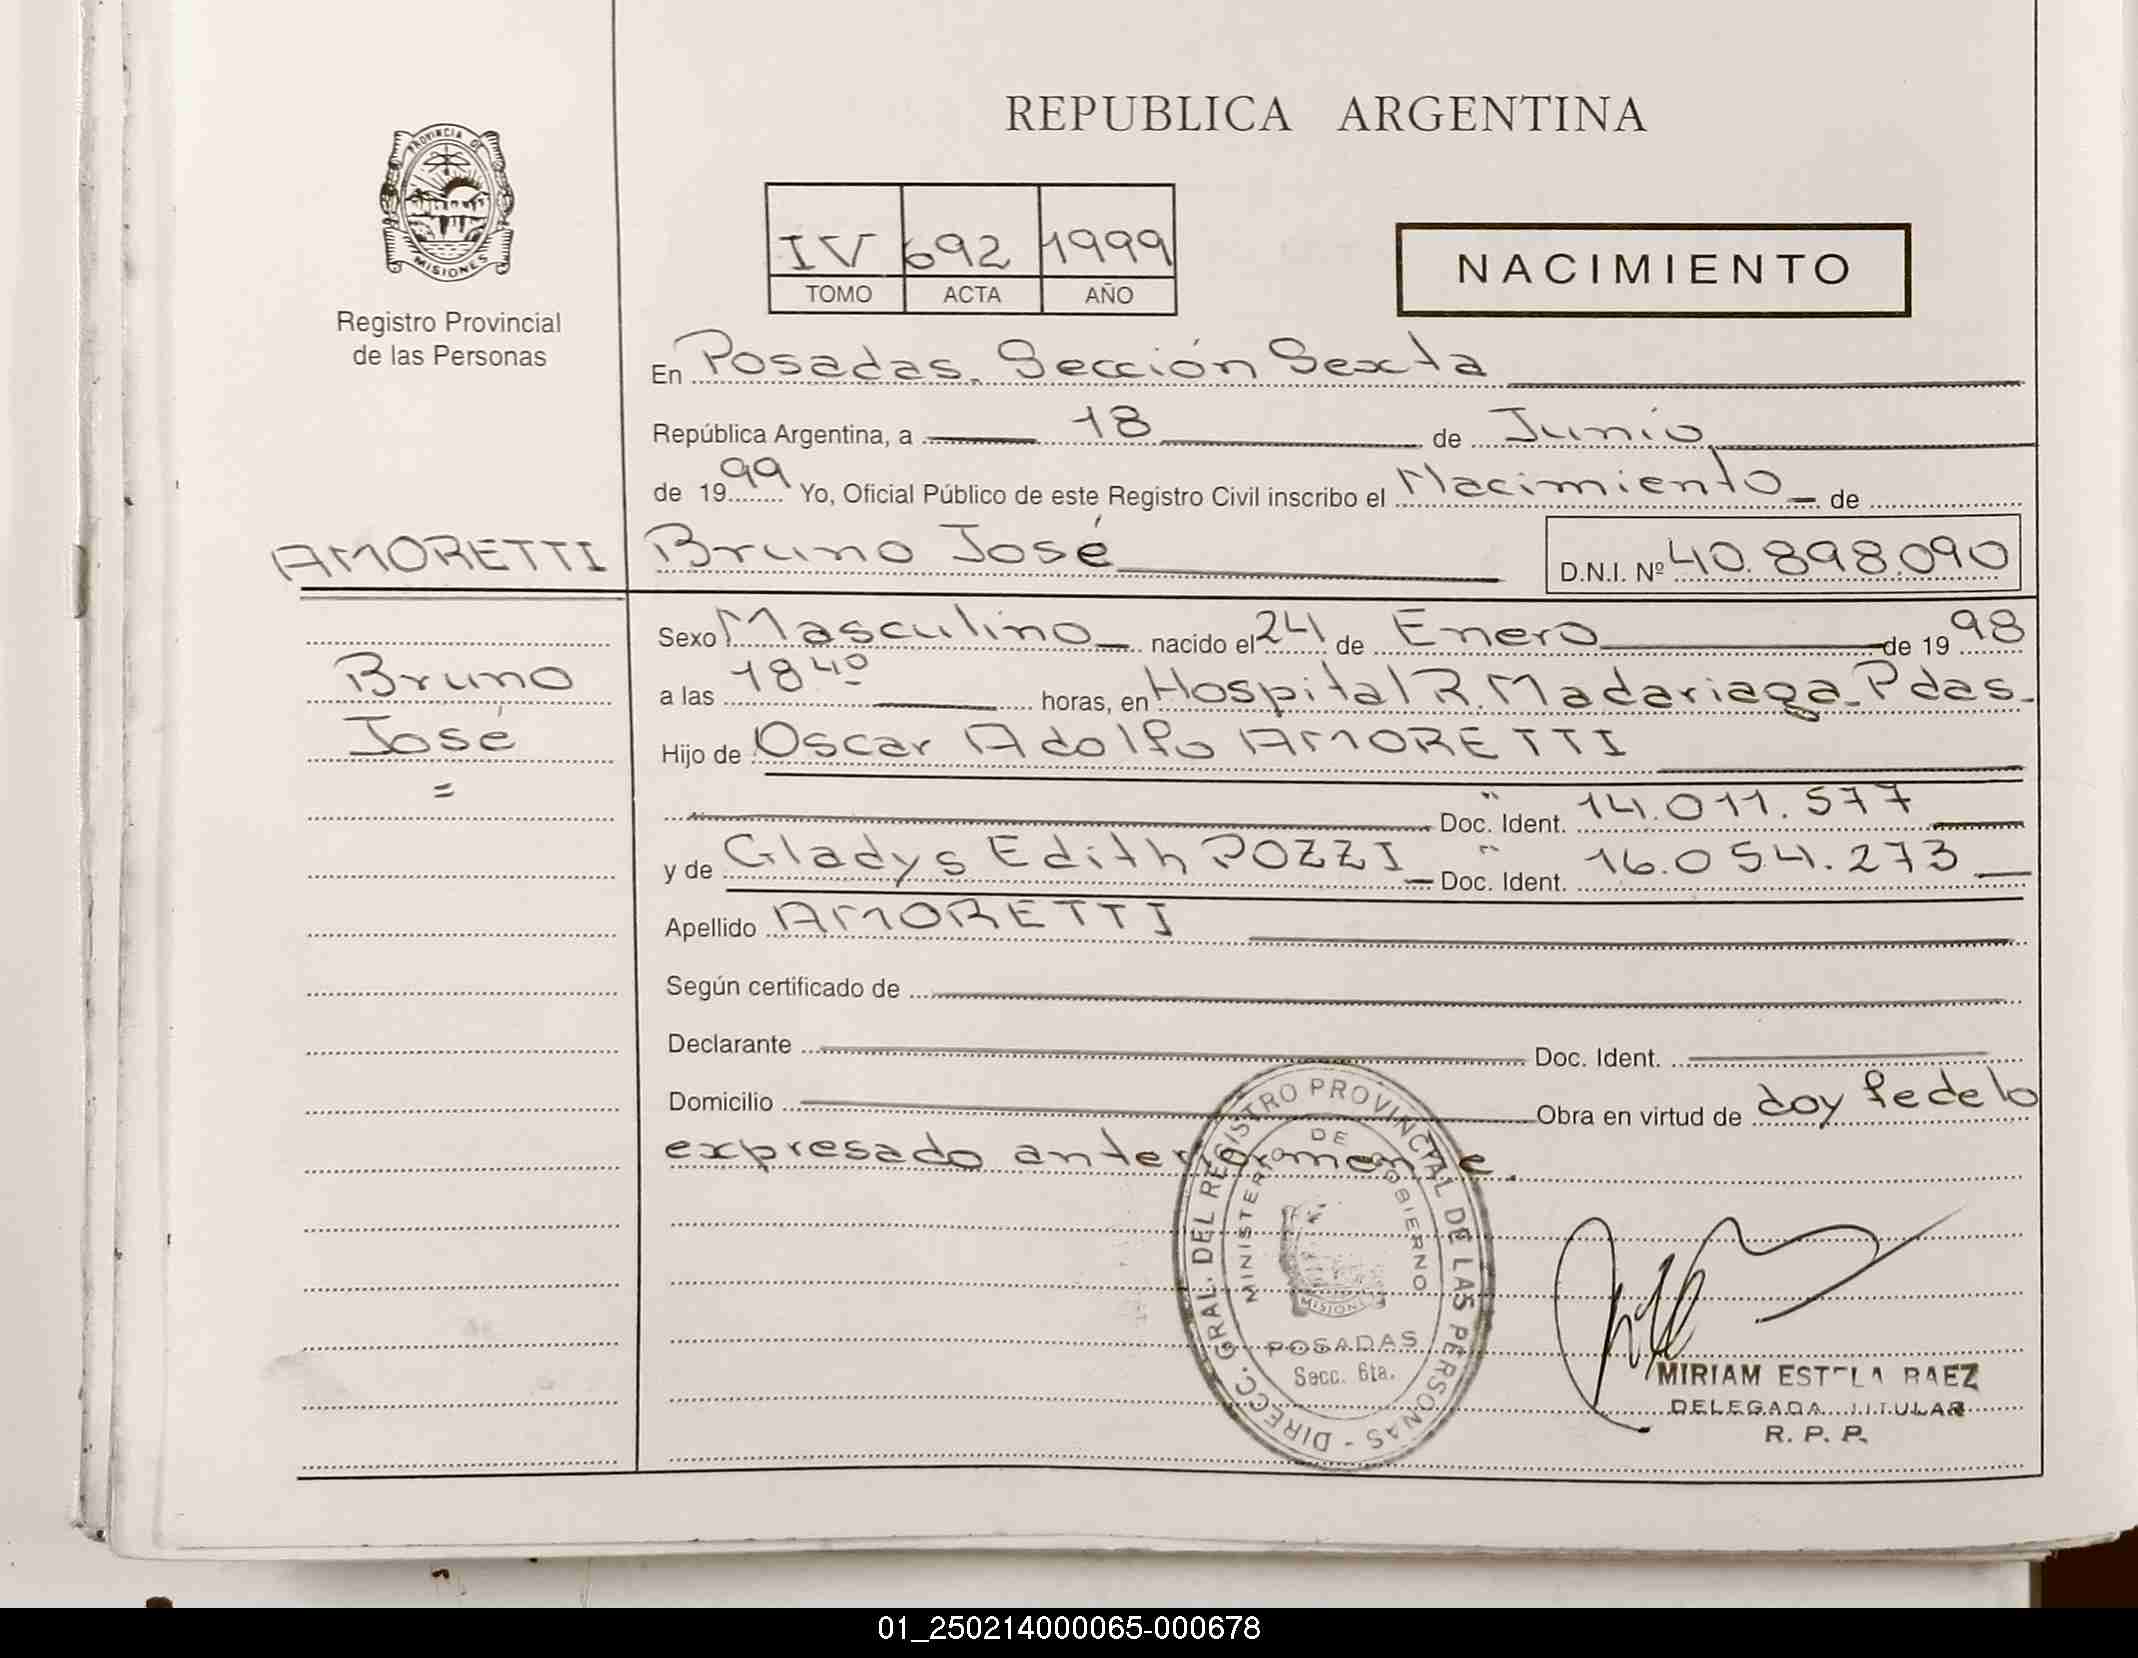 REPUBLICA ARGENTINA
PROVINCIA DE
MISIONES
Registro Provincial
de las Personas
IV 692 1999
TOMO ACTA AÑO
NACIMIENTO
En Posadas. Sección Sexta
República Argentina, a 18 de Junio
de 1999 Yo, Oficial Público de este Registro Civil inscribo el Nacimiento de
AMORETTI
Bruno José
D.N.I. Nº 40.898.090
Bruno
José
=
Sexo Masculino nacido el 24 de Enero de 1998
a las 18 40 horas, en Hospital R. Madariaga-Pdas-
Hijo de Oscar Adolfo AMORETTI
Doc. Ident. " 14.011.577
y de Gladys Edith POZZI Doc. Ident. " 16.054.273
Apellido AMORETTI
Según certificado de
Declarante Doc. Ident.
Domicilio Obra en virtud de doy fe de lo
expresado anteriormente.
DIRECC. GRAL. DEL REGISTRO PROVINCIAL DE LAS PERSONAS -
MINISTERIO DE GOBIERNO
MISIONES
POSADAS
Secc. 6ta.
MIRIAM ESTELA BAEZ
DELEGADA TITULAR
R. P. P.
01_250214000065-000678